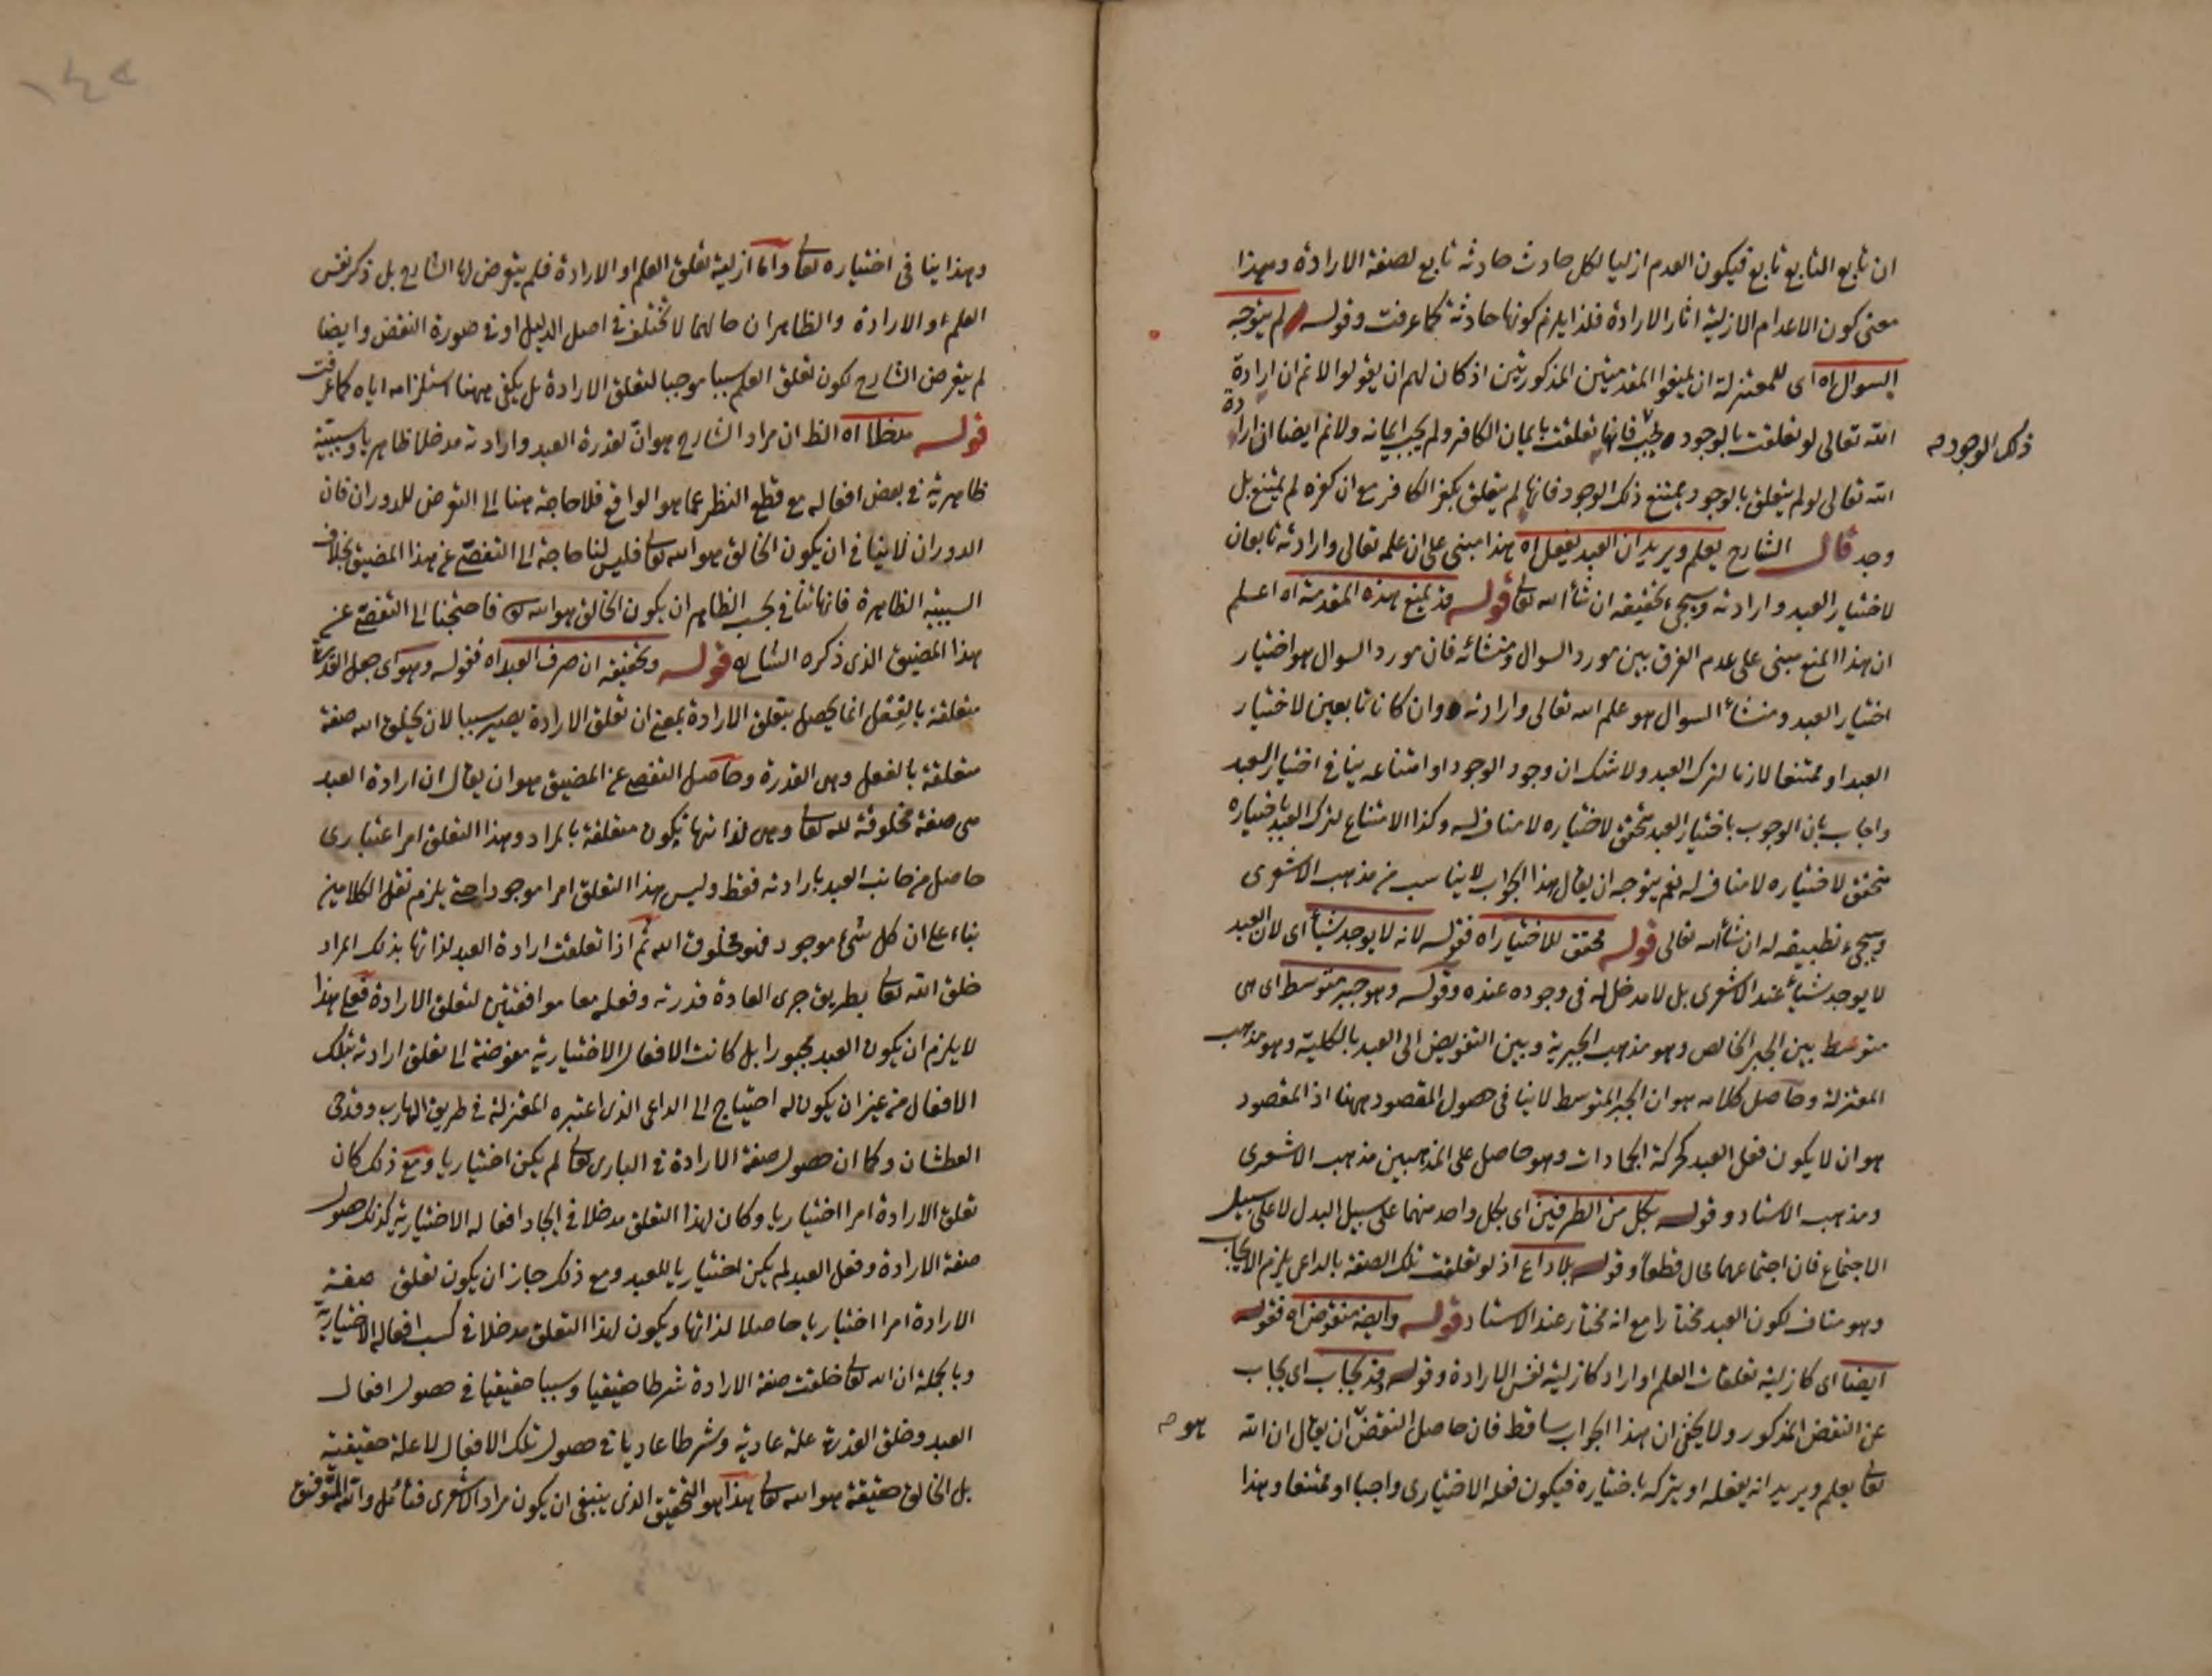 ان تابع التابع تابع فيكون العدم ازليا لكل حادث حادثه تابع لصفة الارادة وبهذا
معنى كون الاعدام الازلية اثار الارادة فلذا يلزم كونها حادثة كما عرفت وقوله لم يتوجه
السوال اه اى للمعتزلة ان يمنعوا المقدمتين المذكورتين اذ كان لهم ان يقولوا لانم ان ارادة
الله تعالى لو تعلقت بالوجود يجب فانها تعلقت بايمان الكافر ولم يجب ايمانه ولانم ايضا ان ارادة
ذلك الوجود م
الله تعالى لو لم يتعلق بالوجود يمتنع ذلك الوجود فانها لم يتعلق بكفر الكافر مع ان كفره لم يمتنع بل
وجد قال الشارح يعلم ويريد ان العبد يفعل اه هذا مبنى على ان علمه تعالى وارادته تابعان
لاختيار العبد وارادته وسيجى تحقيقه ان شأ الله تعالى قوله قد يمنع هذه المقدمة اه اعلم
ان هذا المنع مبنى على عدم الفرق بين مورد السوال ومنشائه فان مورد السوال هو اختيار
اختيار العبد ومنشأ السوال هو علم الله تعالى وارادته وان كانا تابعين لاختيار
العبد او ممتنعا لازما لترك العبد ولا شك ان وجود الوجود او امتناعه ينافى اختيار العبد
واجاب بان الوجوب باختيار العبد محقق لاختياره لا مناف له وكذا الامتناع لترك العبد باختياره
محقق لاختياره لا مناف له نعم يتوجه ان يقال هذا الجواب لا يناسب من مذهب الاشعرى
وسيجى تطبيقه له ان شأ الله تعالى قوله محقق للاختيار اه فقوله لانه لا يوجد شيأ اى لان العبد
لا يوجد شيأ عند الاشعرى بل لا مدخل له فى وجوده عنده وقوله وهو جبر متوسط اى هى
متوسط بين الجبر الخالص وهو مذهب الجبرية وبين التفويض الى العبد بالكلية وهو مذهب
المعتزلة وحاصل كلامه هو ان الجبر المتوسط لا ينافى حصول المقصود ههنا اذ المقصود
هو ان لا يكون فعل العبد كحركة الجمادات وهو حاصل على المذهبين مذهب الاشعرى
ومذهب الاستاد وقوله بكل من الطرفين اى بكل واحد منهما على سبيل البدل لا على سبيل
الاجتماع فان اجتماعهما محال قطعا وقوله بلا داع اذ لو تعلقت تلك الصفة بالداعى يلزم الايجاب
وهو مناف لكون العبد مختارا مع انه مختار عند الاستاد قوله وايضه منقوض اه فقوله
ايضا اى كازلية تعلقات العلم او اراد كازلية نفس الارادة وقوله وقد يجاب اى يجاب
عن النقض المذكور ولا يخفى ان هذا الجواب ساقط فان حاصل النقض ان يقال ان الله
هو م
تعالى يعلم ويريد انه يفعله او يتركه باختياره فيكون فعله الاختيارى واجبا او ممتنعا وهذا
١٤٢
وهذا ينافى اختياره تعالى واما ازلية تعلق العلم او الارادة فلم يتعرض لها الشارح بل ذكر نفس
العلم او الارادة والظاهر ان حالهما لا تختلف فى اصل الدليل او فى صورة النقض وايضا
لم يتعرض الشارح لكون تعلق العلم سببا موجبا لتعلق الارادة بل يكفى ههنا استلزامه اياه كما عرفت
قوله مدخلا اه الظ ان مراد الشارح هو ان لقدرة العبد وارادته مدخلا ظاهريا وسببية
ظاهرية فى بعض افعاله مع قطع النظر عما هو الواقع فلا حاجة هنا الى التعرض للدوران فان
الدوران لا ينافى ان يكون الخالق هو الله تعالى فليس لنا حاجة الى التفصى عن هذا المضيق بخلاف
السببية الظاهرة فانها تنافى بحسب الظاهر ان يكون الخالق هو الله تعالى فاحتجنا الى التفصى عن
هذا المضيق الذى ذكره الشارح قوله وتحقيقه ان صرف العبد اه فقوله وهو اى جعل القدرة
متعلقة بالفعل انما يحصل بتعلق الارادة بمعنى ان تعلق الارادة يصير سببا لان يخلق الله صفة
متعلقة بالفعل وهى القدرة وحاصل التفصى عن المضيق هو ان يقال ان ارادة العبد
هى صفة مخلوقة لله تعالى وهى لذاتها يكون متعلقة بالمراد وهذا التعلق امر اعتبارى
حاصل من جانب العبد بارادته فقط وليس هذا التعلق امرا موجودا حتى يلزم نقل الكلام من
بناء على ان كل شئ موجود فهو مخلوق الله ثم اذا تعلقت ارادة العبد لذاتها بذلك المراد
خلق الله تعالى بطريق جرى العادة قدرته وفعله معا موافقتين لتعلق الارادة فعلى هذا
لا يلزم ان يكون العبد مجبورا بل كانت الافعال الاختيارية مفوضة الى تعلق ارادته بتلك
الافعال من غير ان يكون له احتياج الى الداعى الذى اعتبره المعتزلة فى طريق الهارب وقدحى
العطشان وكما ان حصول صفة الارادة فى البارى تعالى لم يكن اختياريا ومع ذلك كان
تعلق الارادة امرا اختياريا وكان لهذا التعلق مدخلا فى ايجاد افعاله الاختيارية كذلك حصول
صفة الارادة وفعل العبد لم يكن اختياريا للعبد ومع ذلك جاز ان يكون تعلق صفة
الارادة امرا اختياريا حاصلا لذاتها ويكون لهذا التعلق مدخلا فى كسب افعاله الاختيارية
وبالجملة ان الله تعالى خلقت صفة الارادة شرطا حقيقيا وسببا حقيقيا فى حصول افعال
العبد وخلق القدرة علة عادية وشرطا عاديا فى حصول تلك الافعال لا علة حقيقية
بل الخالق حقيقة هو الله تعالى هذا هو التحقيق الذى ينبغى ان يكون مراد الاشعرى فتأمل والله الموفق